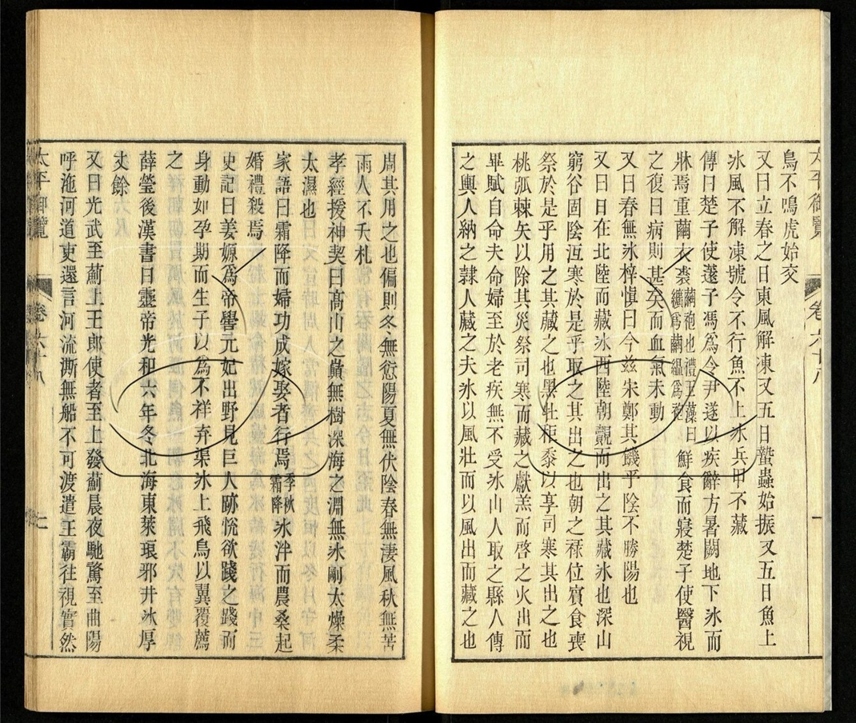 太平御覽 卷六十八 一
鳥不鳴虎始交
又曰立春之日東風解凍又五日蟄蟲始振又五日魚上
冰風不解凍號令不行魚不上冰兵甲不藏
傳曰楚子使薳子馮爲令尹遂以疾辭方暑闕地下冰而
牀焉重繭衣裘繭袍也禮玉藻曰纊爲繭縕爲袍鮮食而寢楚子使醫視
之復曰瘠則甚矣而血氣未動
又曰春無冰梓慎曰今茲宋鄭其饑乎陰不勝陽也
又曰日在北陸而藏冰西陸朝覿而出之其藏冰也深山
窮谷固陰沍寒於是乎取之其出之也朝之祿位賓食喪
祭於是乎用之其藏之也黑牡秬黍以享司寒其出之也
桃弧棘矢以除其災祭司寒而藏之獻羔而啓之火出而
畢賦自命夫命婦至於老疾無不受冰山人取之縣人傳
之輿人納之隸人藏之夫冰以風壯而以風出而藏之也
周其用之也偏則冬無愆陽夏無伏陰春無淒風秋無苦
雨人不夭札
孝經援神契曰高山之巓無樹深海之淵無冰剛太燥柔
太濕也
家語曰霜降而婦功成嫁娶者行焉季秋霜降冰泮而農桑起
婚禮殺焉
史記曰姜嫄爲帝嚳元妃出野見巨人跡恱欲踐之踐而
身動如孕期而生子以爲不祥弃渠冰上飛鳥以翼覆薦
之
薛瑩後漢書曰靈帝光和六年冬北海東萊琅邪井冰厚
丈餘
又曰光武至薊上王郎使者至上發薊晨夜馳騖至曲陽
呼沲河道吏還言河流澌無船不可渡遣王霸往視實然
太平御覽 卷六十八 二